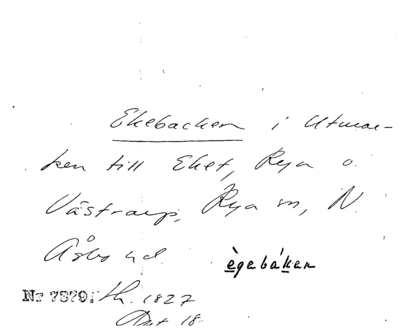 Ekebacken i Utmar-
ken till Eket, Rya o.
Västraup, Rya sn, N.
Åsbo hd. ègebáken
No 7879. th. 1827
Ant 18.